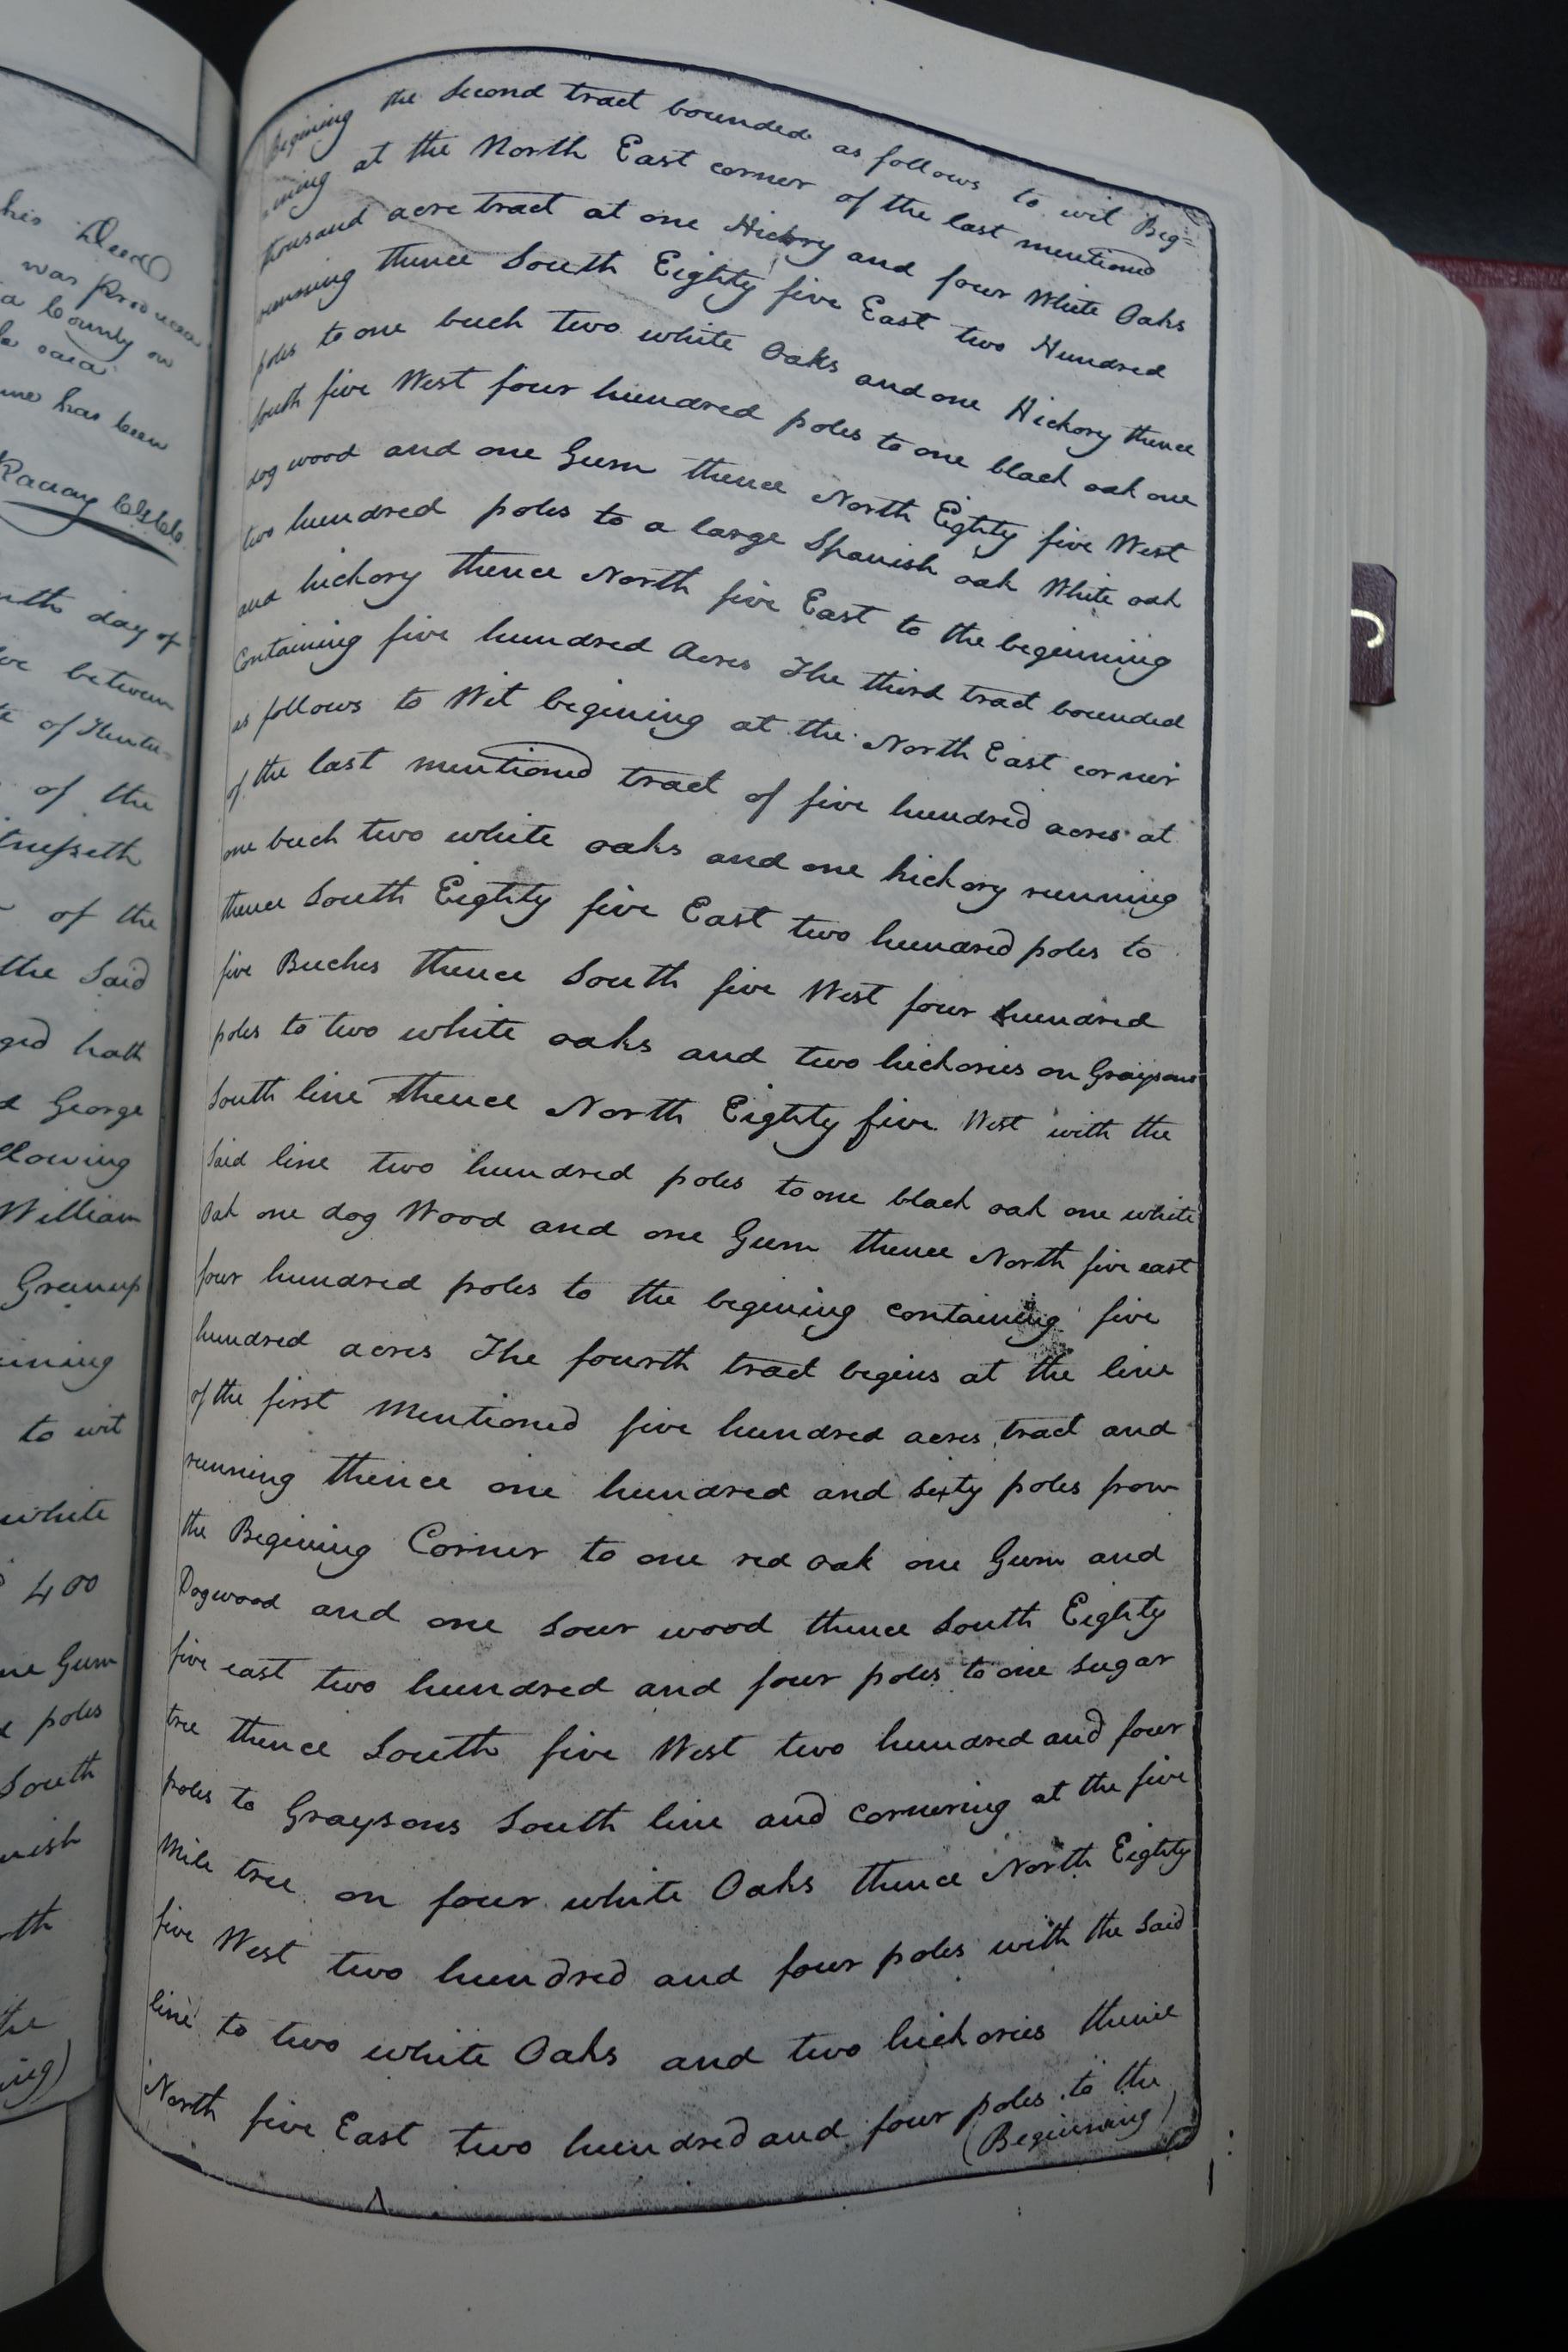 his Deed
was Produced
a County on
me has been
th day of
between
of the
of the
the Said
hath
George
William
Greenup
to wit
white
400
Gum
poles
South
Begining the Second tract bounded as follows to wit Beg=
ining at the North East corner of the last mentioned
thousand acre tract at one Hickory and four White Oaks
running thence South Eighty five East two Hundred
poles to one buch two white Oaks and one Hickory thence
South five West four hundred poles to one black oak one
dog wood and one Gum thence North Eighty five West
two hundred poles to a large Spanish oak White oak
and hickory thence North five East to the beginning
Containing five hundred Acres The third tract bounded
as follows to Wit begining at the North East corner
of the last mentioned tract of five hundred acres at
one buch two white oaks and one hickory running
thence South Eighty five East two hundred poles to
five Buches thence South five West four hundred
poles to two white oaks and two hickories on Graysons
South line thence North Eighty five West with the
Said line two hundred poles to one black oak one white
Oak one dog Wood and one Gum thence North five east
four hundred poles to the begining containing five
hundred acres The fourth tract begins at the line
of the first Mentioned five hundred acres tract and
running thence one hundred and sixty poles from
the Begining Corner to one red oak one Gum and
Dogwood and one Sour wood thence South Eighty
five east two hundred and four poles to one Sugar
tree thence South five West two hundred and four
poles to Graysons South line and cornering at the five
Mile tree on four white Oaks thence North Eighty
five West two hundred and four poles with the Said
line to two white Oaks and two hickories thence
North five East two hundred and four poles to the
(Beginning)